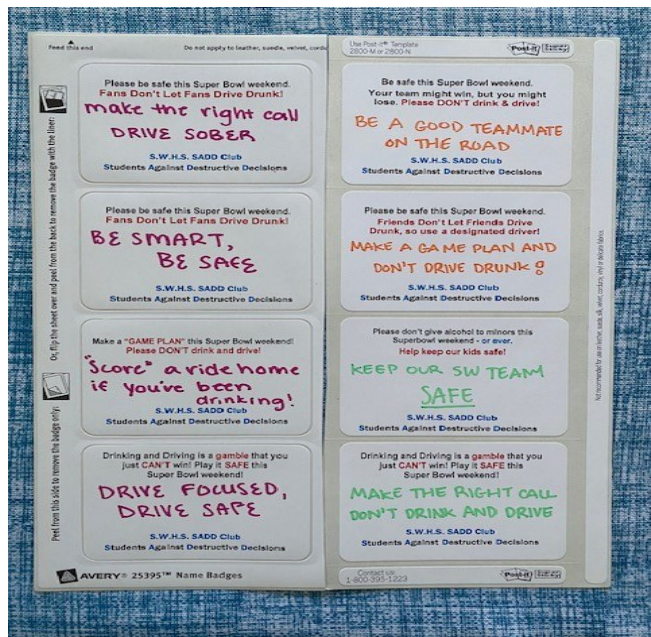 Feed this end
Do not apply to leather, suede, velvet,
Or, flip the sheet over and peel from the back to remove the badge with the liner:
Peel from this side to remove the badge only:
Please be safe this Super Bowl weekend.
Fans Don't Let Fans Drive Drunk!
make the right call
DRIVE SOBER
S.W.H.S. SADD Club
Students Against Destructive Decisions
Please be safe this Super Bowl weekend.
Fans Don't Let Fans Drive Drunk!
BE SMART,
BE SAFE
S.W.H.S. SADD Club
Students Against Destructive Decisions
Make a "GAME PLAN" this Super Bowl weekend!
Please DON'T drink and drive!
"Score" a ride home
if you've been
drinking!
S.W.H.S. SADD Club
Students Against Destructive Decisions
Drinking and Driving is a gamble that you
just CAN'T win! Play it SAFE this
Super Bowl weekend!
DRIVE FOCUSED,
DRIVE SAFE
S.W.H.S. SADD Club
Students Against Destructive Decisions
AVERY® 25395™ Name Badges
Use Post-it® Template
2800-M or 2800-N
Post-it
Be safe this Super Bowl weekend.
Your team might win, but you might
lose. Please DON'T drink & drive!
BE A GOOD TEAMMATE
ON THE ROAD
S.W.H.S. SADD Club
Students Against Destructive Decisions
Please be safe this Super Bowl weekend.
Friends Don't Let Friends Drive
Drunk, so use a designated driver!
MAKE A GAME PLAN AND
DON'T DRIVE DRUNK!
S.W.H.S. SADD Club
Students Against Destructive Decisions
Please don't give alcohol to minors this
Superbowl weekend - or ever.
Help keep our kids safe!
KEEP OUR SW TEAM
SAFE
S.W.H.S. SADD Club
Students Against Destructive Decisions
Drinking and Driving is a gamble that you
just CAN'T win! Play it SAFE this
Super Bowl weekend!
MAKE THE RIGHT CALL
DON'T DRINK AND DRIVE
S.W.H.S. SADD Club
Students Against Destructive Decisions
Contact us:
1-800-395-1223
Post-it
Not recommended for use on leather, suede, silk, velvet, corduroy, vinyl or delicate fabrics.